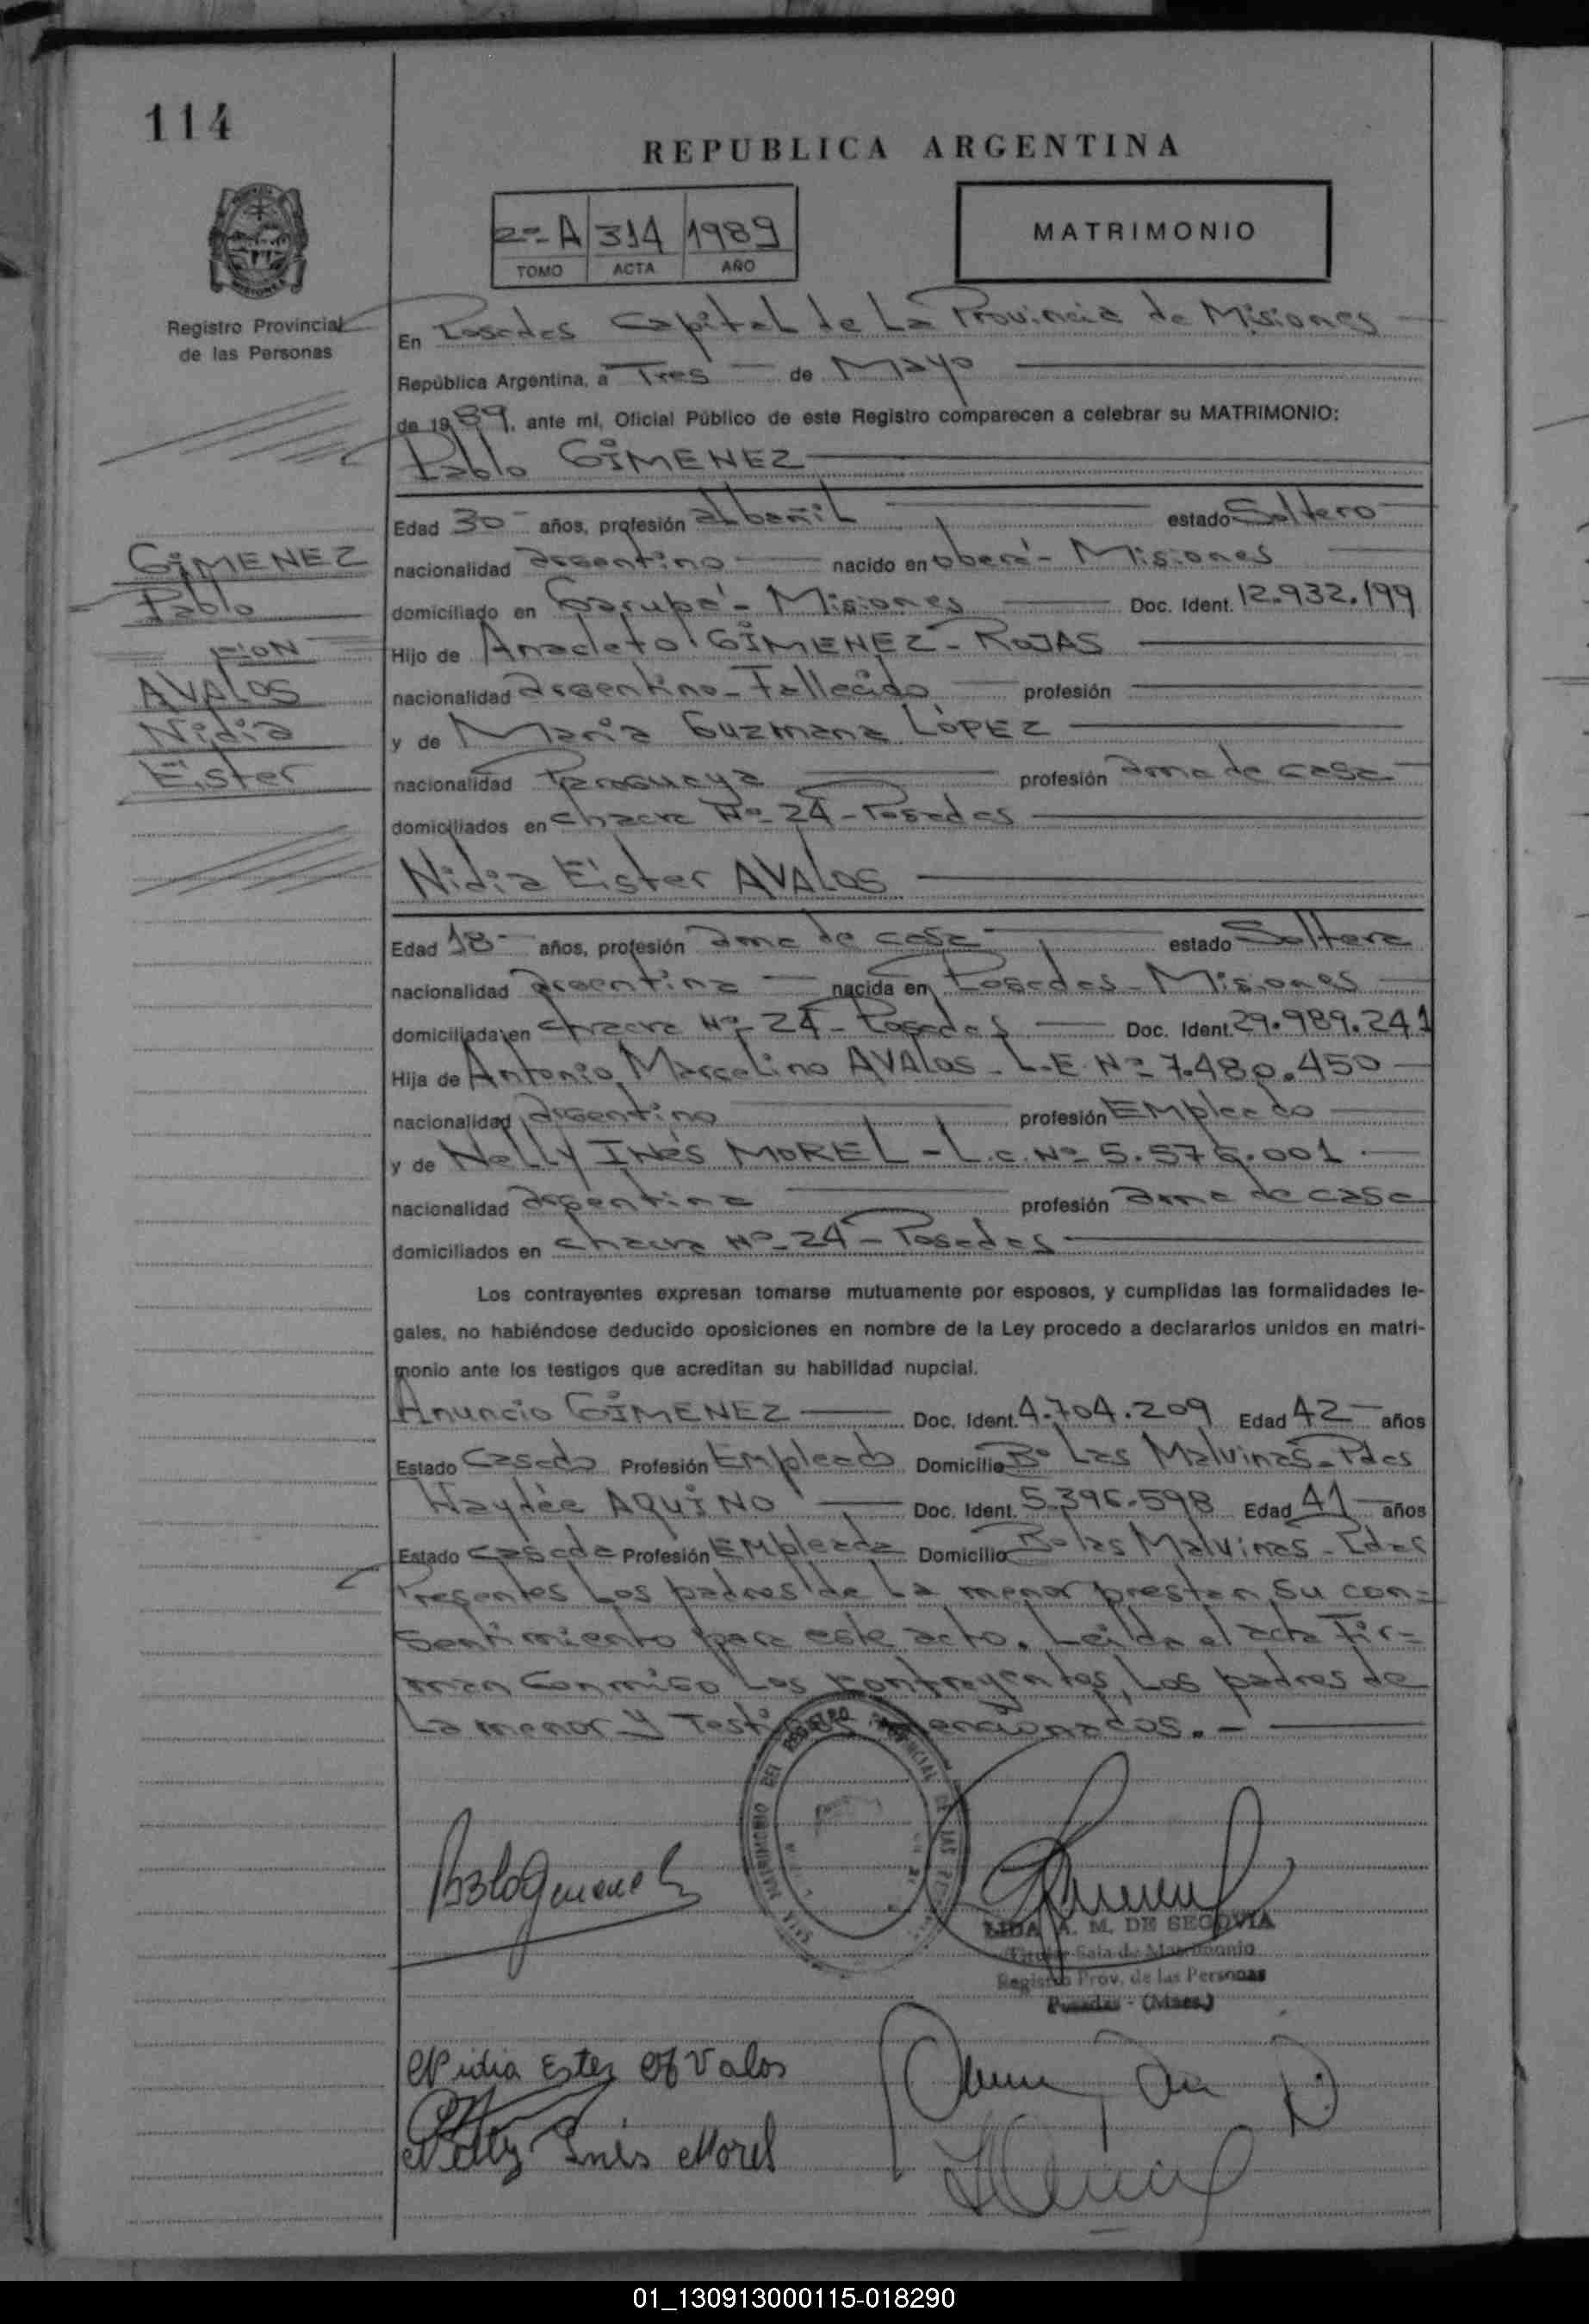 114
REPUBLICA ARGENTINA
2º- A 314 1989
TOMO ACTA AÑO
MATRIMONIO
Registro Provincial
de las Personas
En Posadas Capital de La Provincia de Misiones
República Argentina, a Tres de Mayo
de 1989, ante mi, Oficial Público de este Registro comparecen a celebrar su MATRIMONIO:
Pablo GIMENEZ
Edad 30- años, profesión albañil estado Soltero
nacionalidad argentino nacido en oberá- Misiones
domiciliado en Garupá- Misiones Doc. Ident. 12.932.199
Hijo de Anacleto GIMENEZ- ROJAS
nacionalidad argentino- Fallecido profesión
y de Maria Guzmana LÓPEZ
nacionalidad Paraguaya profesión ama de casa
domiciliados en chacra Nº- 24- Posadas
GIMENEZ
Pablo
AVALOS
Nidia
Ester
Nidia Ester AVALOS
Edad 18- años, profesión ama de casa estado Soltera
nacionalidad argentina nacida en Posadas- Misiones
domiciliada en chacra Nº- 24- Posadas Doc. Ident. 29.989.241
Hija de Antonio Marcelino AVALOS- L.E. Nº 7.480.450
nacionalidad argentino profesión Empleado
y de Nelly INés MOREL- L.c. Nº 5.576.001
nacionalidad argentina profesión ama de casa
domiciliados en chacra Nº- 24- Posadas
Los contrayentes expresan tomarse mutuamente por esposos, y cumplidas las formalidades le-
gales, no habiéndose deducido oposiciones en nombre de la Ley procedo a declararlos unidos en matri-
monio ante los testigos que acreditan su habilidad nupcial.
Anuncio GIMENEZ Doc. Ident. 4.704.209 Edad 42 años
Estado Casado Profesión Empleado Domicilio Bº Las Malvinas- Pdas
Haydée AQUINO Doc. Ident. 5.396.598 Edad 41 años
Estado casada Profesión Empleada Domicilio Bº las Malvinas- Pdas
Presentes Los padres de La menor prestan su con=
sentimiento para este acto. Leida el acta Fir=
man conmigo Los contrayentes, Los padres de
La menor y Testigos mencionados.-
LIDIA A. M. DE SEGOVIA
Titular Sala de Matrimonio
Registro Prov. de las Personas
Posadas - (Mnes.)
Nidia Ester Avalos
Nelly Inés Morel
01_130913000115-018290